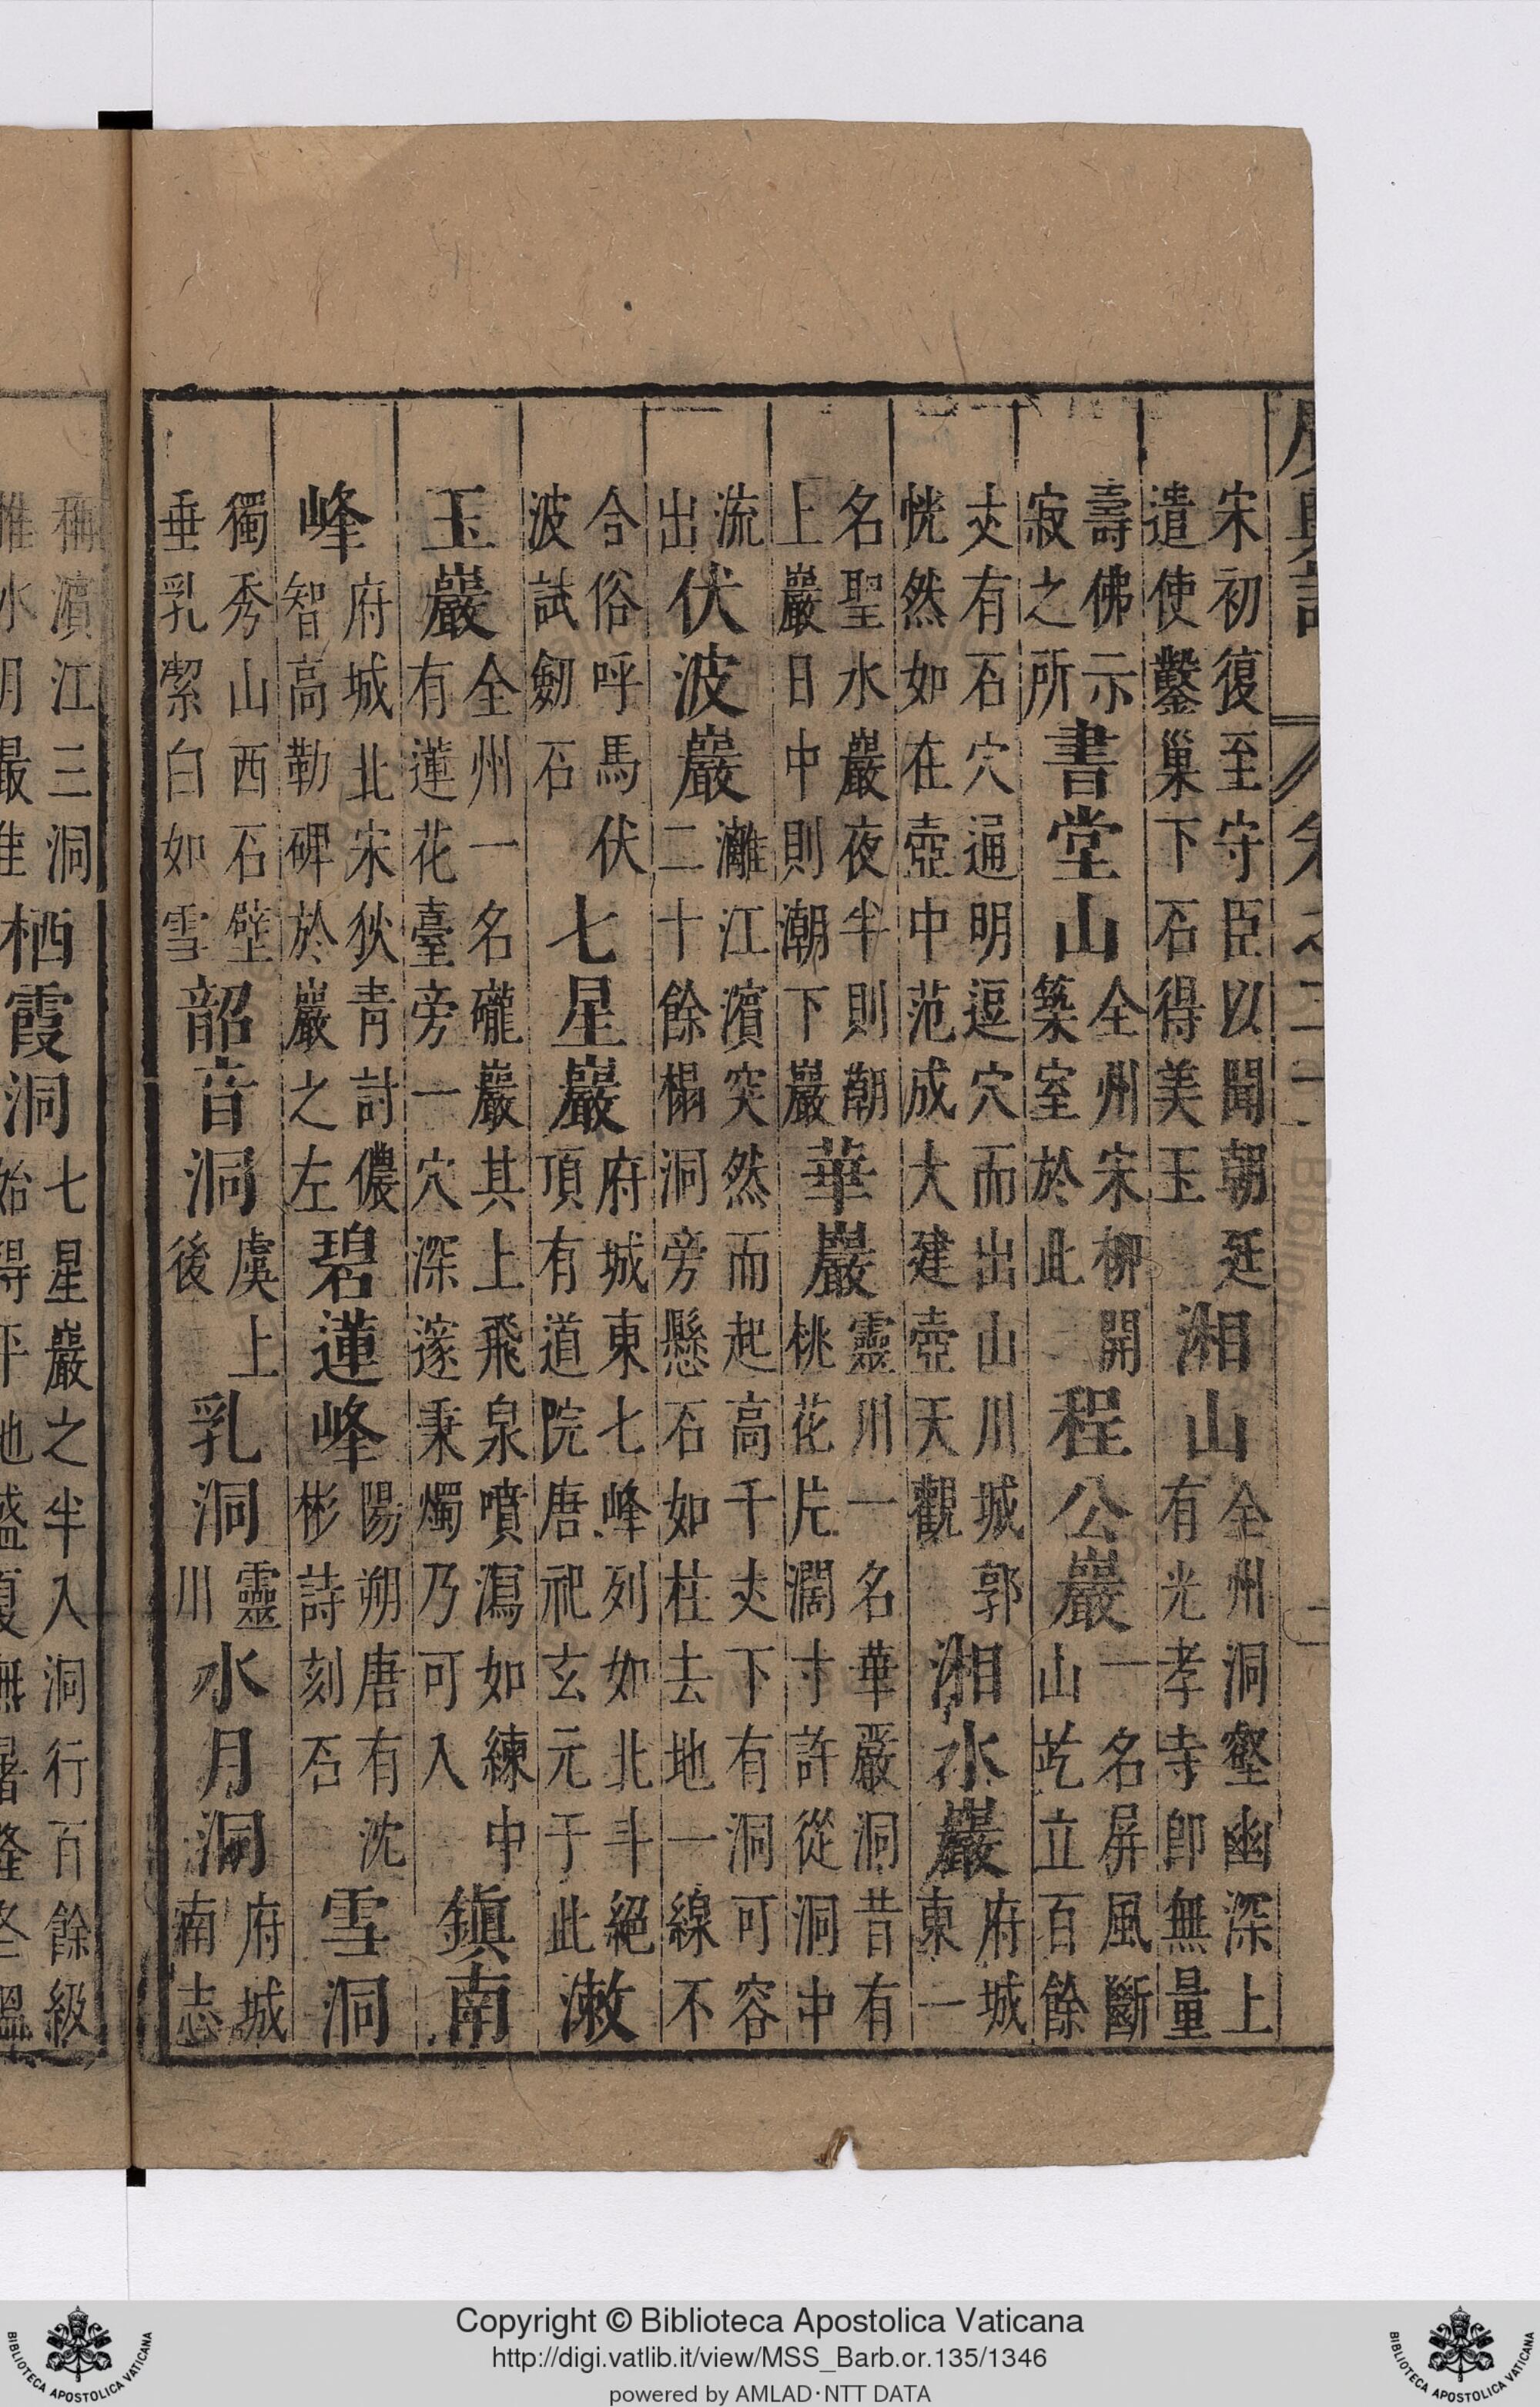 宋初復至守臣以聞朝廷遣使鑿巢下石得美玉湘山全州洞壑幽深上有光孝寺卽無量
壽佛示寂之所書堂山全州宋柳開築室於此程公巖一名屏風斷山屹立百餘
夾有石穴通明逗穴而出山川城郭恍然如在壺中范成大建壺天觀湘水巖府城東一
名聖水巖夜半則朝上巖日中則潮下巖華巖靈川一名華嚴洞昔有桃花片濶寸許從洞中
流出伏波巖灕江濵突然而起高千丈下有洞可容二十餘榻洞旁懸石如柱去地一線不
合俗呼馬伏波試劒石七星巖府城東七峰列如北斗絕頂有道院唐祀玄元于此漱
玉巖全州一名礲巖其上飛泉噴瀉如練中有蓮花臺旁一穴深邃秉燭乃可入鎭南
峰府城北宋狄青討儂智高勒碑於巖之左碧蓮峰陽朔唐有沈彬詩刻石雪洞
獨秀山西石壁垂乳潔白如雪韶音洞虞上後乳洞靈川水月洞府城南志
稱濵江三洞惟水月最佳栖霞洞七星巖之半入洞行百餘級始得平地盛夏無暑隆冬溫
Copyright © Biblioteca Apostolica Vaticana
http://digi.vatlib.it/view/MSS_Barb.or.135/1346
powered by AMLAD·NTT DATA
BIBLIOTECA APOSTOLICA VATICANA
BIBLIOTECA APOSTOLICA VATICANA